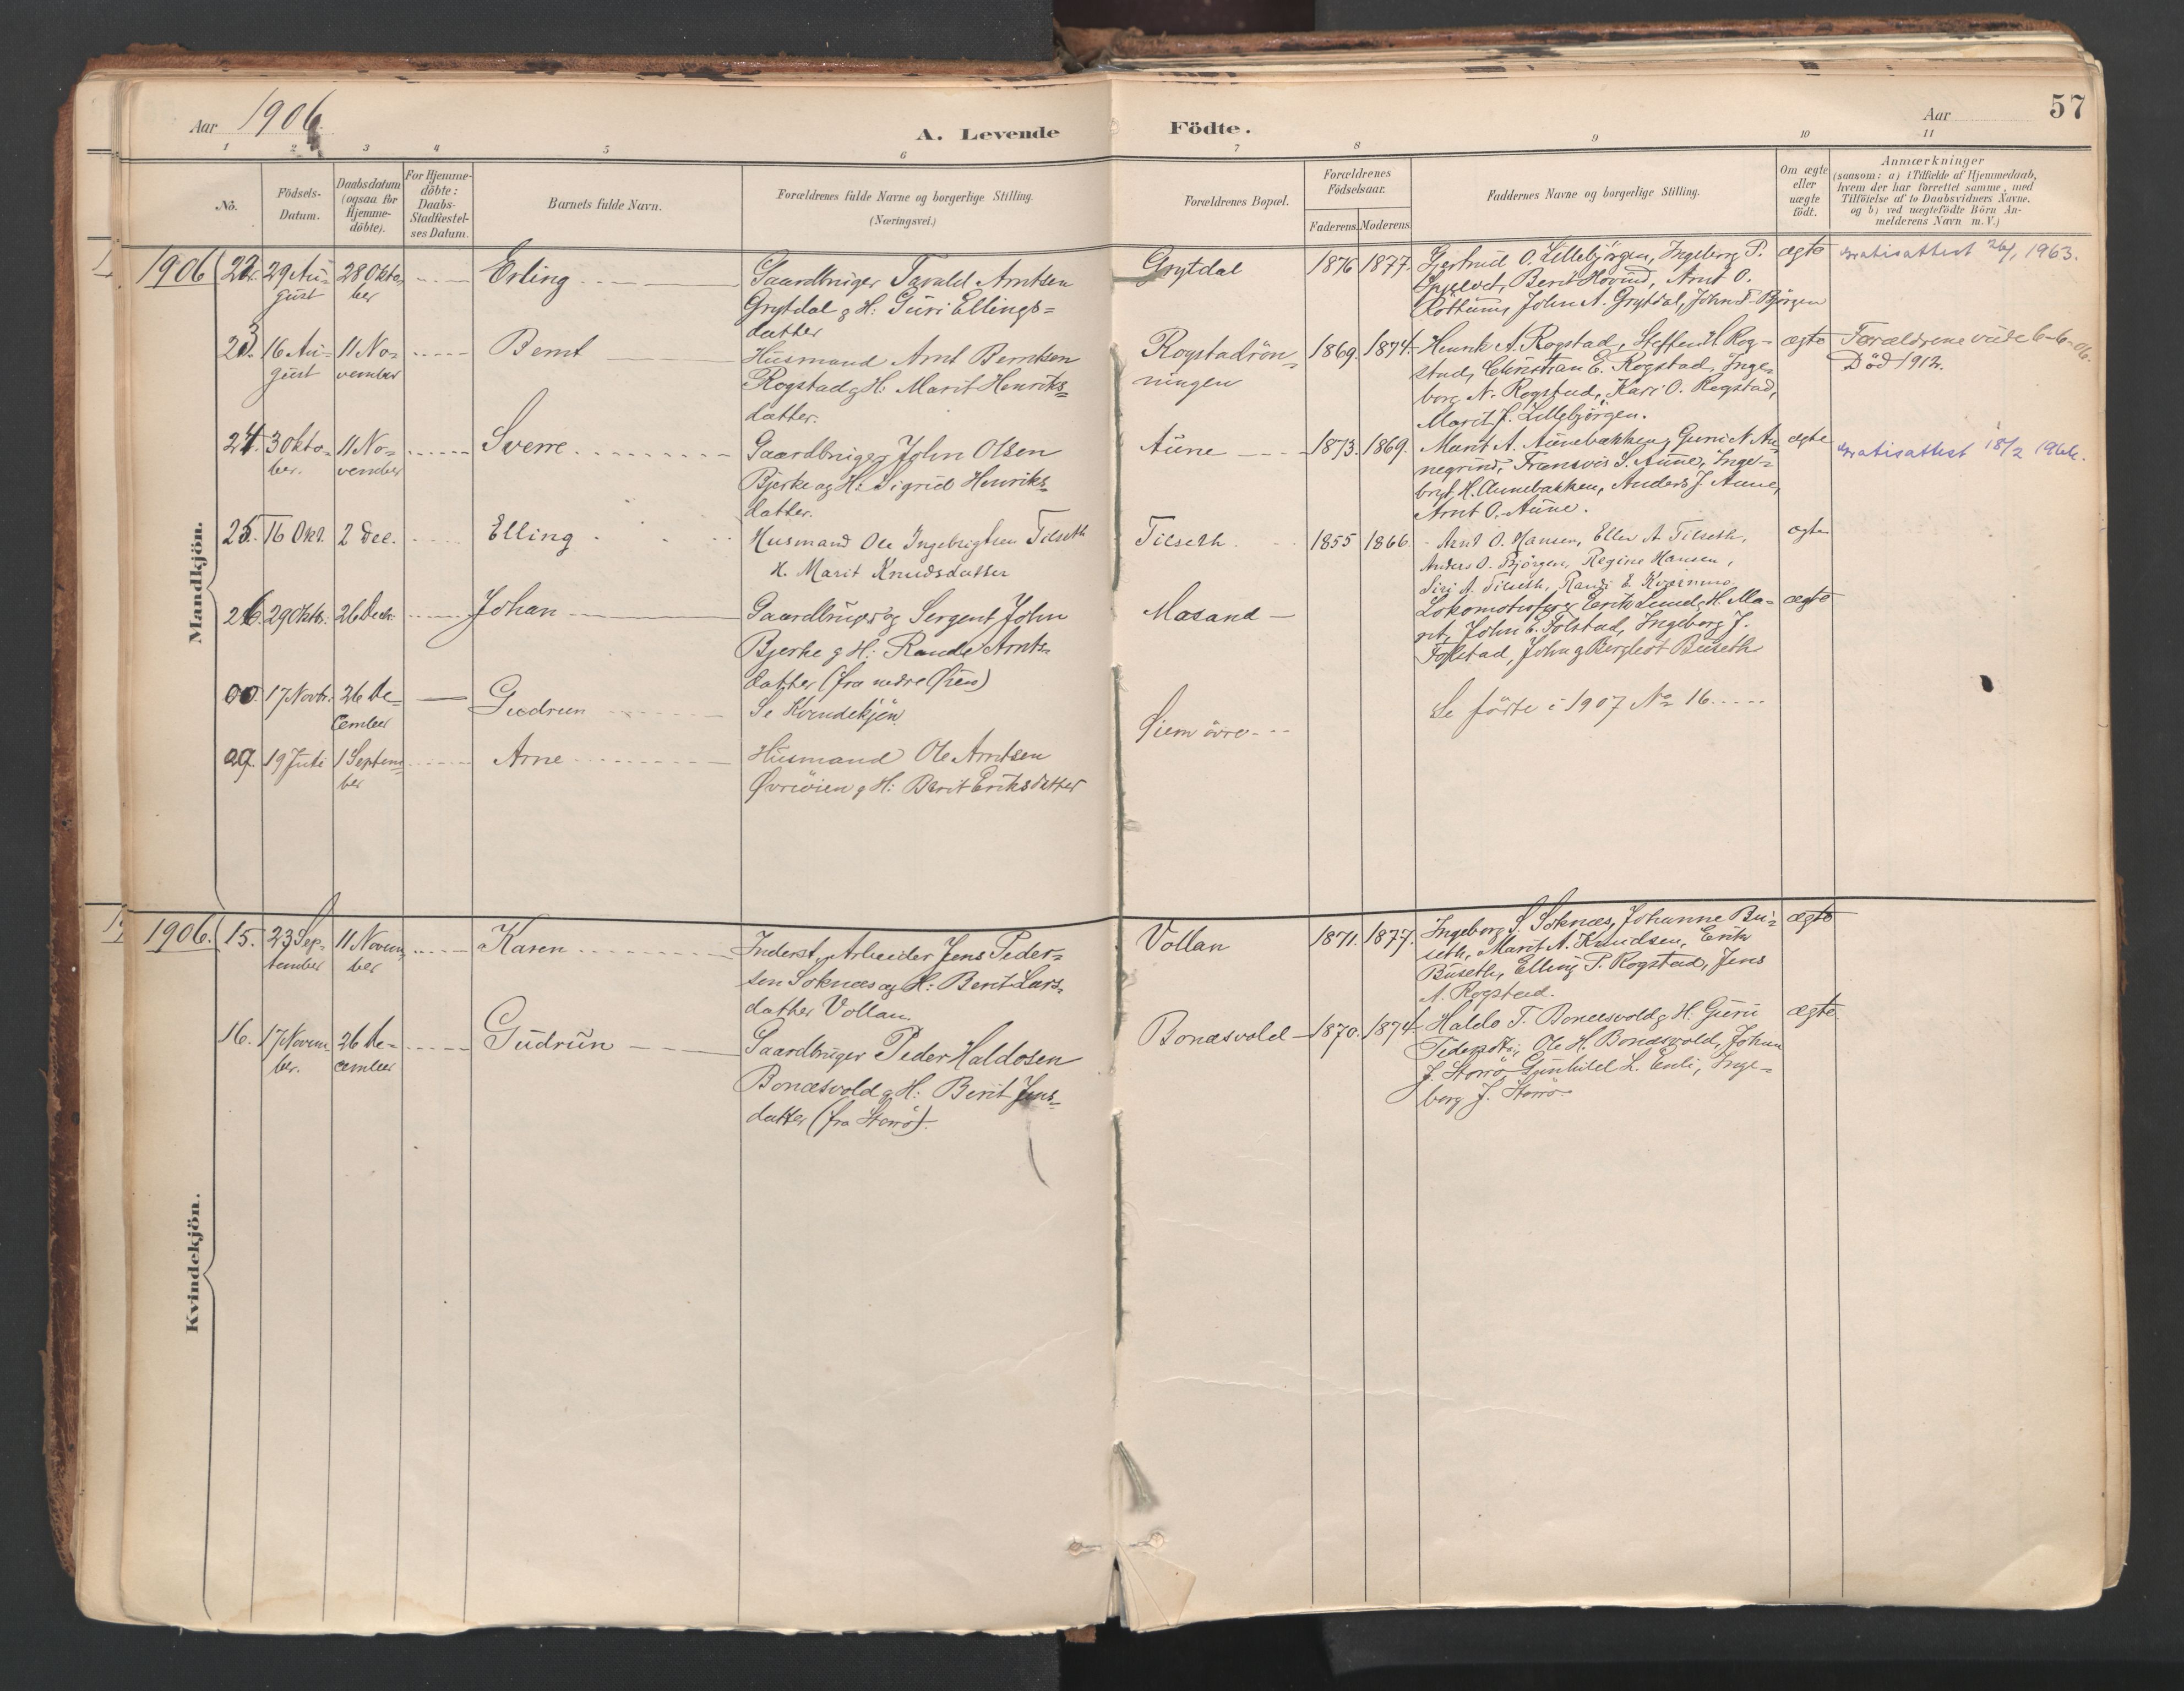 Aar 1906.
A. Levende Födte.
Aar
57
1 2 3 4 5 6 7 8 9 10 11
No.
Födsels-
Datum.
Daabsdatum
(ogsaa for
Hjemme-
döbte).
For Hjemme-
döbte:
Daabs-
Stadfestel-
ses Datum.
Barnets fulde Navn.
Forældrenes fulde Navne og borgerlige Stilling.
(Næringsvei.)
Forældrenes Bopæl.
Forældrenes
Födselsaar.
Faderens. Moderens.
Faddernes Navne og borgerlige Stilling.
Om ægte
eller
uægte
födt.
Anmærkninger
(saasom: a) i Tilfælde af Hjemmedaab,
hvem der har forrettet samme, med
Tilföielse af to Daabsvidners Navne.
og b) ved uægtefödte Börn An-
melderens Navn m. V.)
Mandkjön.
1906 22. 29 Au-
gust
28 Okto
ber
Erling
Gaardbruger Tarald Arntsen
Grytdal g H: Guri Ellings=
datter
Grytdal
1876 1877.
Gjertrud O. Lillebjörgen, Ingeborg P.
Berit Hovind, Arnt O.
Röttum, John A. Grytdal, John Bjørgen
ægte
Gratisattest 26/1 1963.
23. 16 Au-
gust
11 No-
vember
Bernt
Husmand Arnt Berntsen
Rogstad g H: Marit Henriks=
datter.
Rogstadrön=
ningen
1869. 1874.
Henrik A. Rogstad, Steffen H. Rog-
stad, Christian E. Rogstad, Inge=
borg N. Rogstad, Kari O. Rogstad,
Marit J. Lillebjörgen.
ægte
Forældrene viede 6-6-06.
Död 1912.
24. 3 Okto-
ber.
11 No-
vember
Sverre
Gaardbruger John Olsen
Bjerke og H: Sigrid Henriks=
datter.
Aune
1873. 1869.
Marit A. Aunebakken, Guri N. Au-
negrind, Fransvis S. Aune, Inge=
brigt H. Aunebakken, Anders J. Aune,
Arnt O. Aune.
ægte
Gratisattest 18/2 1966.
25. 16 Okt. 2 Dec.
Elling
Husmand Ole Ingebrigtsen Tilseth
H. Marit Knudsdatter
Tilseth
1855 1866.
Arnt O. Hansen, Ellen A. Tilseth,
Anders O. Björgen, Regine Hansen,
Siri A. Tilseth, Randi E. Kvernmo.
ægte
26. 29 Oktbr. 26 Decbr.
Johan
Gaardbruger og Sergent John
Bjerke g H: Randi Arnts=
datter (fra nedre Öien)
Mosand
Lokomotivfyrb. Erik Lund g H. Ma=
rit, John E. Folstad, Ingeborg J.
Folstad, John g Bergliot Buseth
ægte
00. 17 Novbr. 26 De=
cember
Gudrun
Se Kvindekjön.
Se födte i 1907 No 16.
29. 19 Juli 1 Septem=
ber
Arne
Husmand Ole Arntsen
Øvreöien g H: Berit Eriksdatter
Siem övre
Kvindekjön.
1906. 15. 23 Sep-
tember
11 Novem
ber
Karen
Inderst, Arbeider Jens Peder=
sen Soknæs og H: Berit Lars=
datter Vollan.
Vollan
1871. 1877.
Ingeborg S. Soknæs, Johanne Bu-
seth, Marit A. Knudsen, Erik
Buseth, Elling P. Rogstad, Jens
A. Rogstad.
ægte
16. 17 Novem
ber.
26 De-
cember
Gudrun
Gaardbruger Peder Haldosen
Bonæsvold g H: Berit Jens=
datter (fra Storrö).
Bonæsvold
1870. 1874
Haldo T. Bonæsvold g H. Guru
Pedersdtr, Ole H. Bonæsvold, Johan
J. Storrö, Gunhild L. Enli, Inge=
borg J. Storrö.
ægte